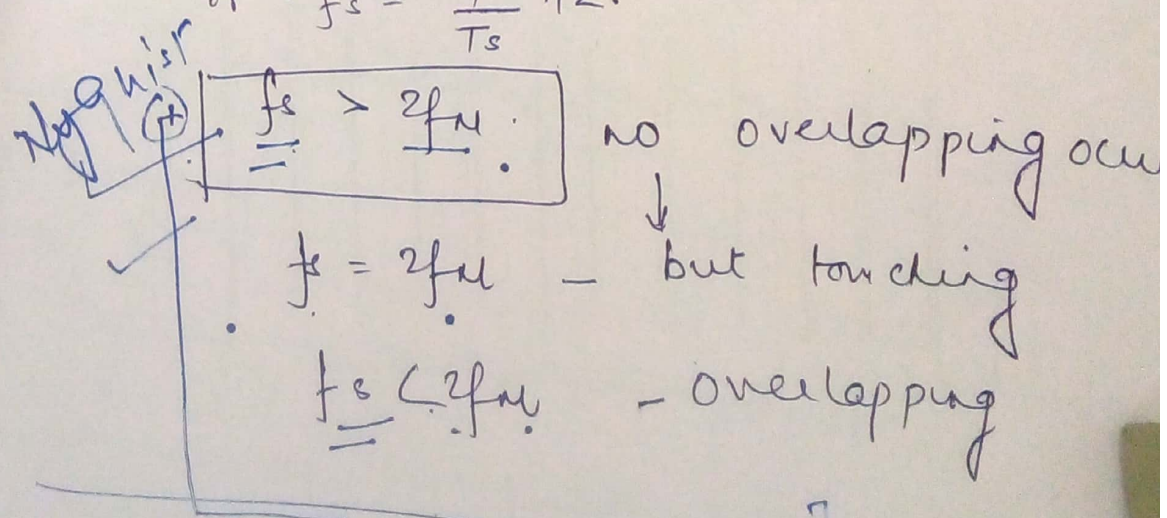 fs =
Ts
Nyquist
fs > 2fM. no overlapping
fs = 2fM - but touching
fs < 2fM - overlapping